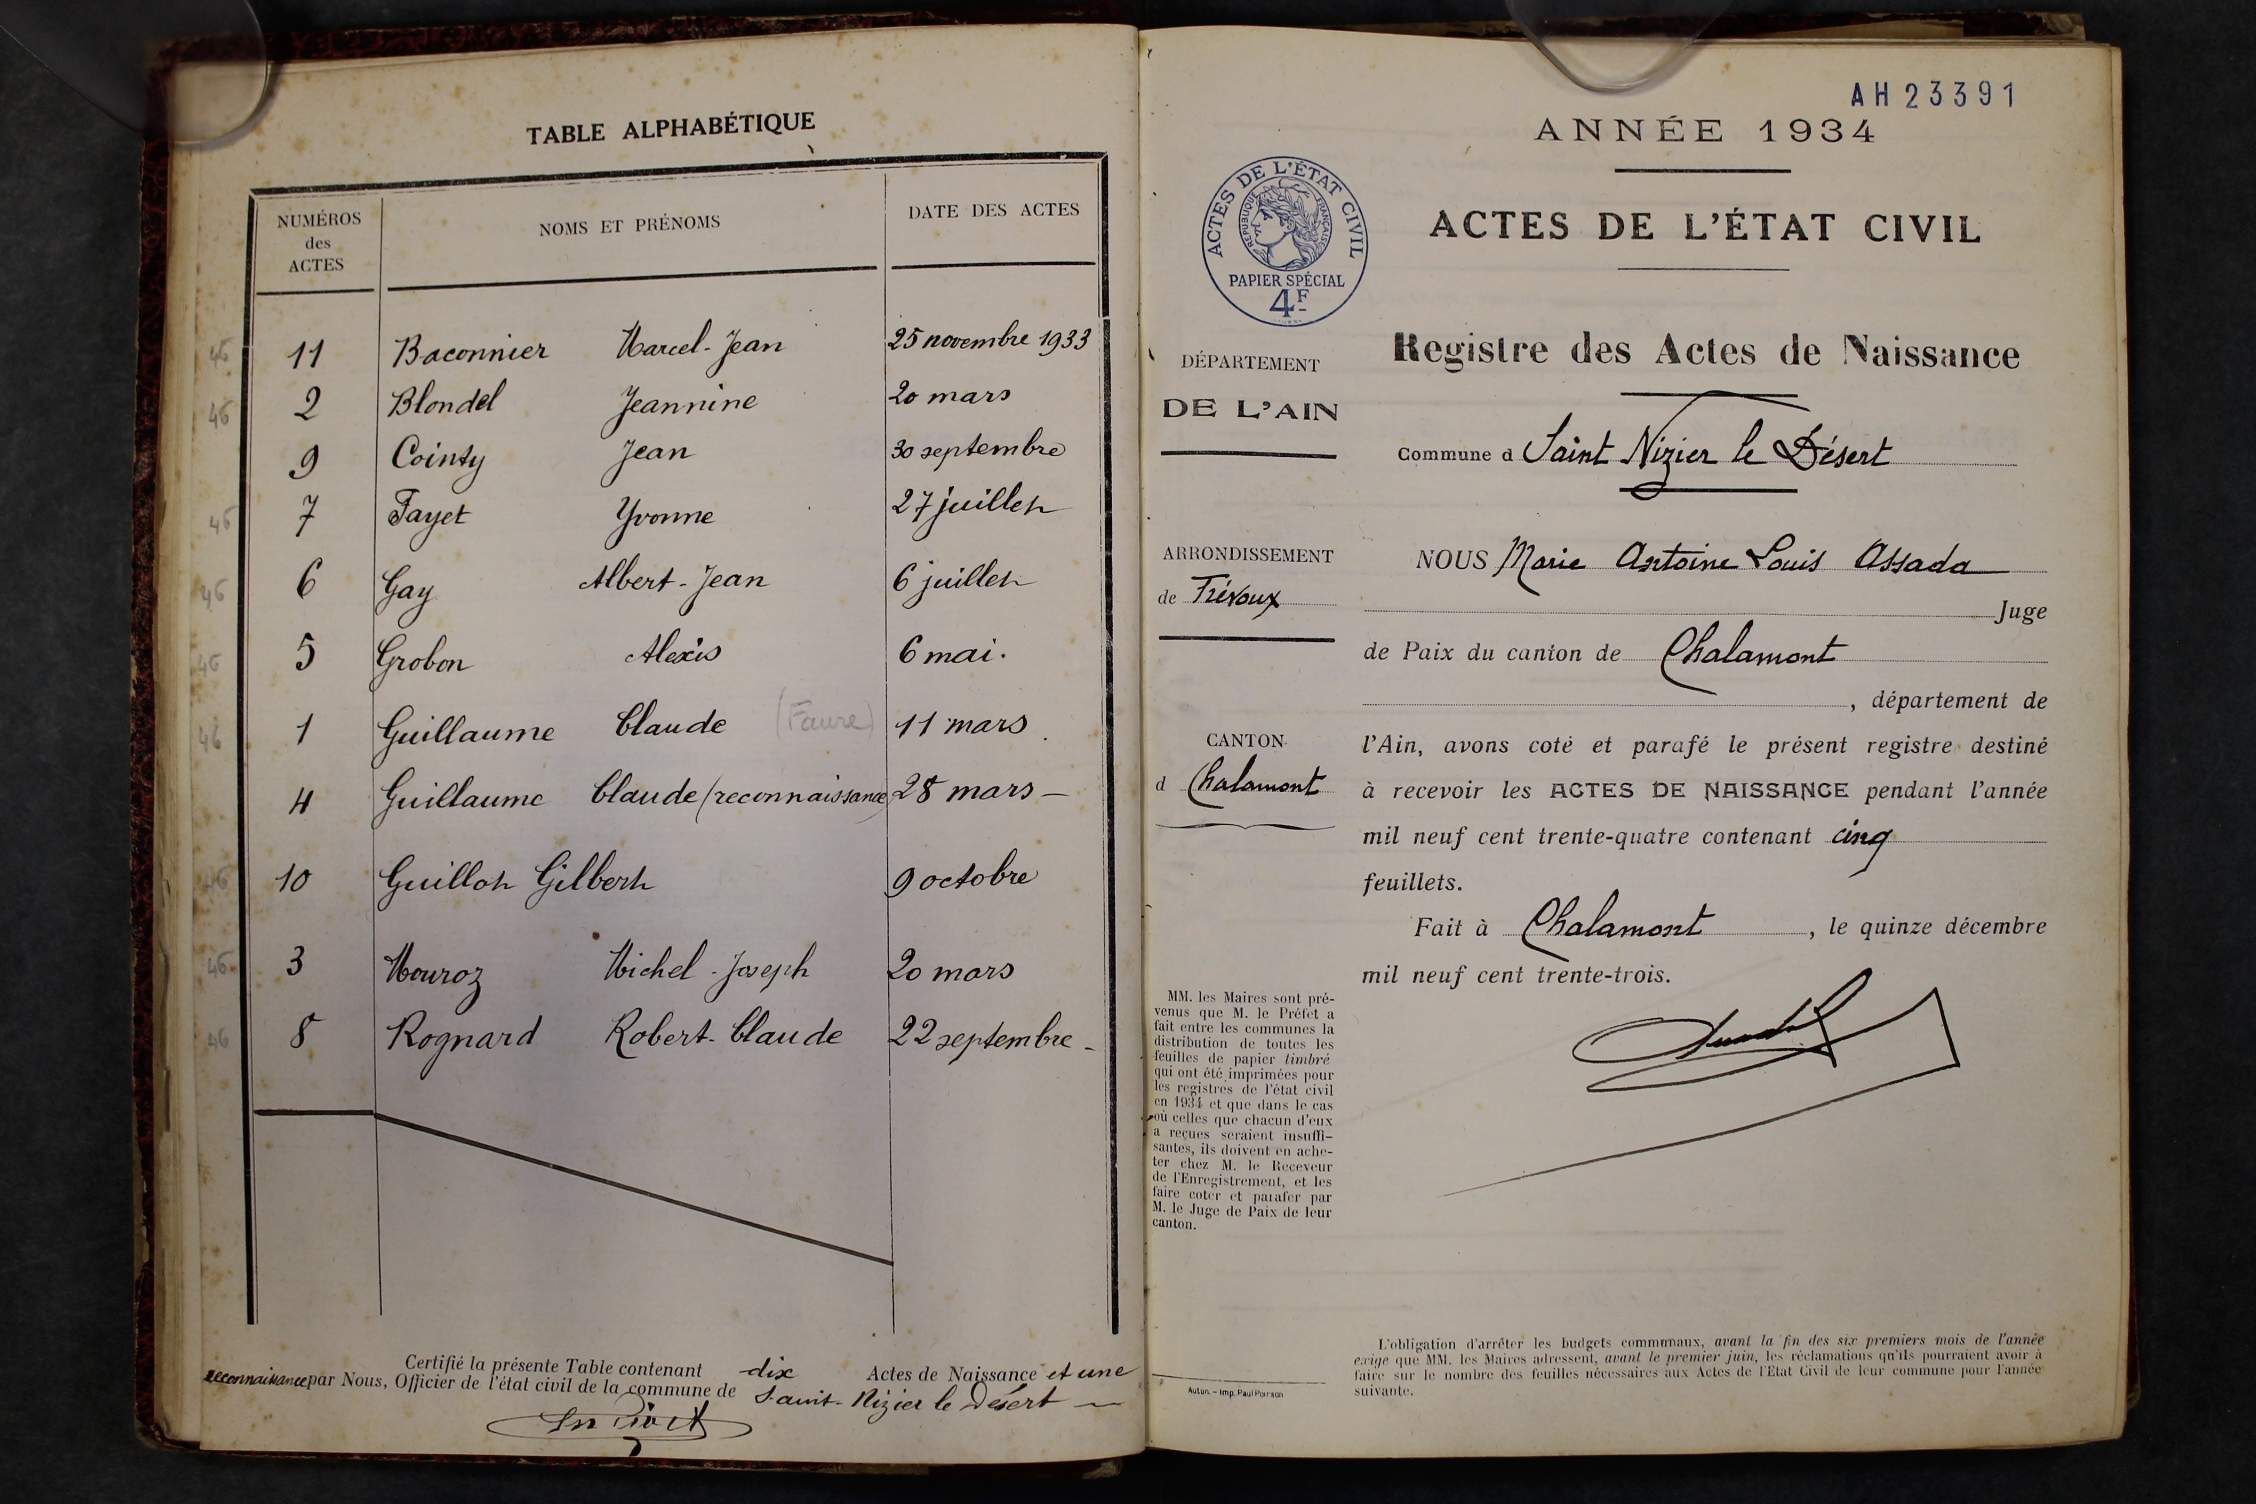 TABLE ALPHABÉTIQUE
NUMÉROS des ACTES NOMS ET PRÉNOMS DATE DES ACTES
46 11 Baconnier Marcel-Jean 25 novembre 1933
46 2 Blondel Jeannine 20 mars
9 Cointy Jean 30 septembre
46 7 Fayet Yvonne 27 juillet
46 6 Gay Albert-Jean 6 juillet
46 5 Grobon Alexis 6 mai.
46 1 Guillaume Claude (Faure) 11 mars
4 Guillaume Claude (reconnaissance) 28 mars —
46 10 Guillot Gilbert 9 octobre
46 3 Mouroz Michel-Joseph 20 mars
46 8 Rognard Robert-Claude 22 septembre -
Certifié la présente Table contenant dix Actes de Naissance et une
reconnaissance par Nous, Officier de l'état civil de la commune de Saint-Nizier le Désert —
AH23391
ANNÉE 1934
ACTES DE L'ÉTAT CIVIL
RÉPUBLIQUE FRANÇAISE
PAPIER SPÉCIAL
4F
ACTES DE L'ÉTAT CIVIL
Registre des Actes de Naissance
DÉPARTEMENT
DE L'AIN
Commune d Saint Nizier le Désert
ARRONDISSEMENT
de Trévoux
CANTON
d Chalamont
NOUS Marie Antoine Louis Assada
Juge
de Paix du canton de Chalamont
, département de
l'Ain, avons coté et parafé le présent registre destiné
à recevoir les ACTES DE NAISSANCE pendant l'année
mil neuf cent trente-quatre contenant cinq
feuillets.
Fait à Chalamont, le quinze décembre
mil neuf cent trente-trois.
MM. les Maires sont pré-
venus que M. le Préfet a
fait entre les communes la
distribution de toutes les
feuilles de papier timbré
qui ont été imprimées pour
les registres de l'état civil
en 1934 et que dans le cas
où celles que chacun d'eux
a reçues seraient insuffi-
santes, ils doivent en ache-
ter chez M. le Receveur
de l'Enregistrement, et les
faire coter et parafer par
M. le Juge de Paix de leur
canton.
Autun. – Imp. Paul Poirson
L'obligation d'arrêter les budgets communaux, avant la fin des six premiers mois de l'année
exige que MM. les Maires adressent, avant le premier juin, les réclamations qu'ils pourraient avoir à
faire sur le nombre des feuilles nécessaires aux Actes de l'Etat Civil de leur commune pour l'année
suivante.